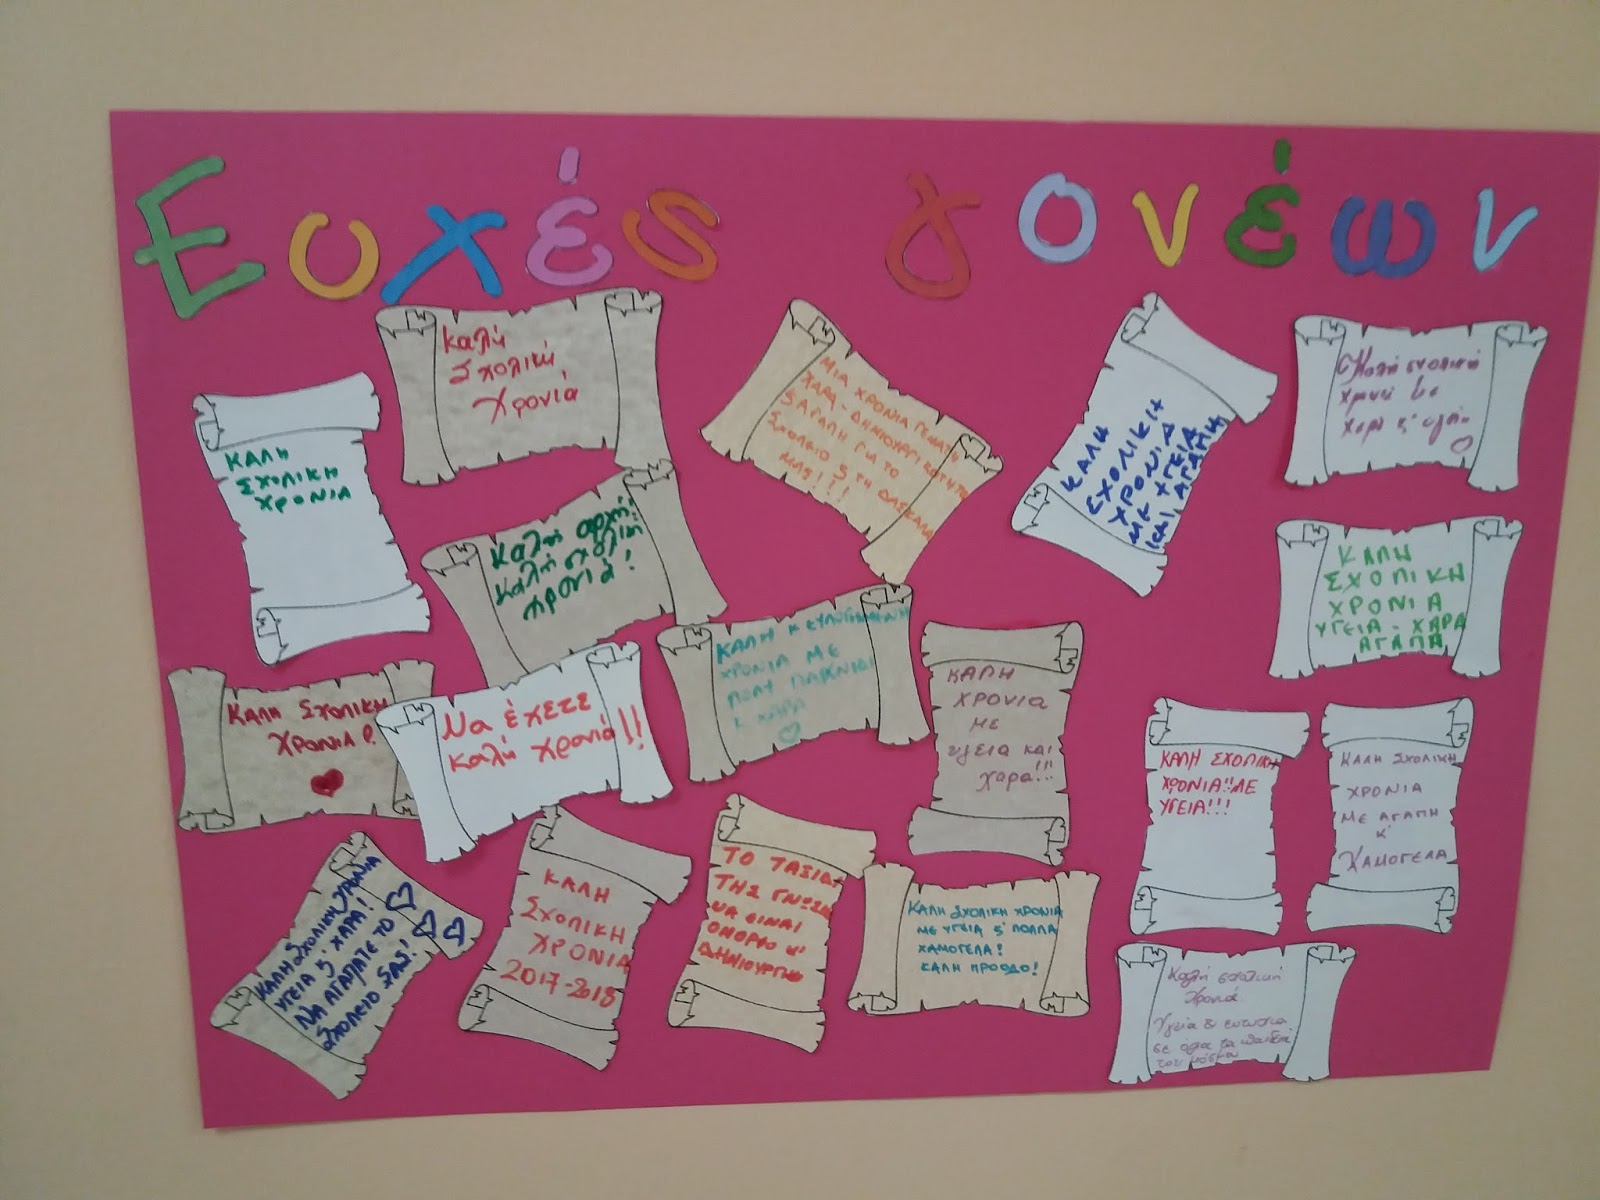 Ευχές γονέων
Καλή
Σχολική
Χρονιά
ΚΑΛΗ
ΣΧΟΛΙΚΗ
ΧΡΟΝΙΑ
Καλή αρχή!
Καλή σχολική
χρονιά!
ΜΙΑ ΧΡΟΝΙΑ ΓΕΜΑΤΗ
ΧΑΡΑ - ΔΗΜΙΟΥΡΓΙΚΟΤΗΤΑ
ΑΓΑΠΗ ΓΙΑ ΤΟ
ΣΧΟΛΕΙΟ ς ΤΗ ΔΑΣΚΑΛΑ
ΜΑΣ!!!
ΚΑΛΗ
ΣΧΟΛΙΚΗ
ΧΡΟΝΙΑ
ΜΕ ΥΓΕΙΑ
ΚΑΙ ΑΓΑΠΗ
Καλή σχολική
χρονιά με
χαρά ς'
ΚΑΛΗ
ΣΧΟΛΙΚΗ
ΧΡΟΝΙΑ
ΥΓΕΙΑ - ΧΑΡΑ
ΑΓΑΠΑ
ΚΑΛΗ ΣΧΟΛΙΚΗ
ΧΡΟΝΙΑ
Να έχετε
καλή χρονιά!!
ΚΑΛΗ Κ ΕΥΛΟΓΗΜΕΝΗ
ΧΡΟΝΙΑ ΜΕ
ΠΟΛΥ ΠΑΙΧΝΙΔΙ
Κ ΧΑΡΑ
ΚΑΛΗ
ΧΡΟΝΙΑ
ΜΕ
υγεια και
χαρα!!!
ΚΑΛΗ ΣΧΟΛΙΚΗ
ΧΡΟΝΙΑ!! ΜΕ
ΥΓΕΙΑ!!!
ΚΑΛΗ ΣΧΟΛΙΚΗ
ΧΡΟΝΙΑ
ΜΕ ΑΓΑΠΗ
Κ'
ΧΑΜΟΓΕΛΑ
ΚΑΛΗ ΣΧΟΛΙΚΗ ΧΡΟΝΙΑ
ΥΓΕΙΑ ς' ΧΑΡΑ!
ΝΑ ΑΓΑΠΑΤΕ ΤΟ
ΣΧΟΛΕΙΟ ΣΑΣ!
ΚΑΛΗ
ΣΧΟΛΙΚΗ
ΧΡΟΝΙΑ
2017-2018
ΤΟ ΤΑΞΙΔΙ
ΤΗΣ ΓΝΩΣΗΣ
ΝΑ ΕΙΝΑΙ
ΟΜΟΡΦΟ κ'
ΔΗΜΙΟΥΡΓΙΚΟ
ΚΑΛΗ ΣΧΟΛΙΚΗ ΧΡΟΝΙΑ
ΜΕ ΥΓΕΙΑ ς' ΠΟΛΛΑ
ΧΑΜΟΓΕΛΑ!
ΚΑΛΗ ΠΡΟΟΔΟ!
Καλή σχολική
Χρονιά
Υγεία & ευτυχία
σε όλα τα παιδιά
του κόσμου